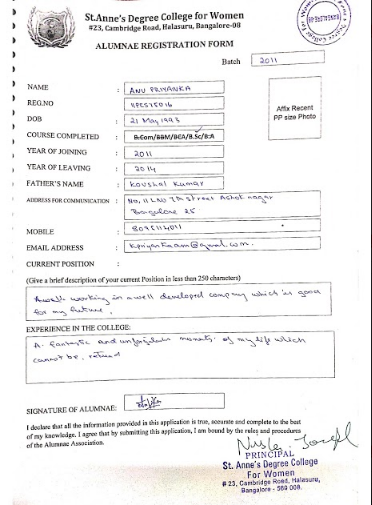 St.Anne's Degree College for Women
#23, Cambridge Road, Halasuru, Bangalore-08
ALUMNAE REGISTRATION FORM
Batch 2011
NAME : ANU PRIYANKA
REG.NO :
DOB : 21 May 1993
COURSE COMPLETED : B.Com/BBM/BCA/B.Sc/B.A
YEAR OF JOINING : 2011
YEAR OF LEAVING : 2014
FATHER'S NAME : Koushal Kumar
Affix Recent
PP size Photo
ADDRESS FOR COMMUNICATION : No, 11 street Ashok nagar
Bangalore 25
MOBILE :
EMAIL ADDRESS :
CURRENT POSITION :
(Give a brief description of your current Position in less than 250 characters)
working in a well developed company which is good
for my future.
EXPERIENCE IN THE COLLEGE:
A fantastic and moments of my life which
cannot be
SIGNATURE OF ALUMNAE:
I declare that all the information provided in this application is true, accurate and complete to the best
of my knowledge. I agree that by submitting this application, I am bound by the rules and procedures
of the Alumnae Association.
PRINCIPAL
St. Anne's Degree College
For Women
# 23, Cambridge Road, Halasuru,
Bangalore - 560 008.